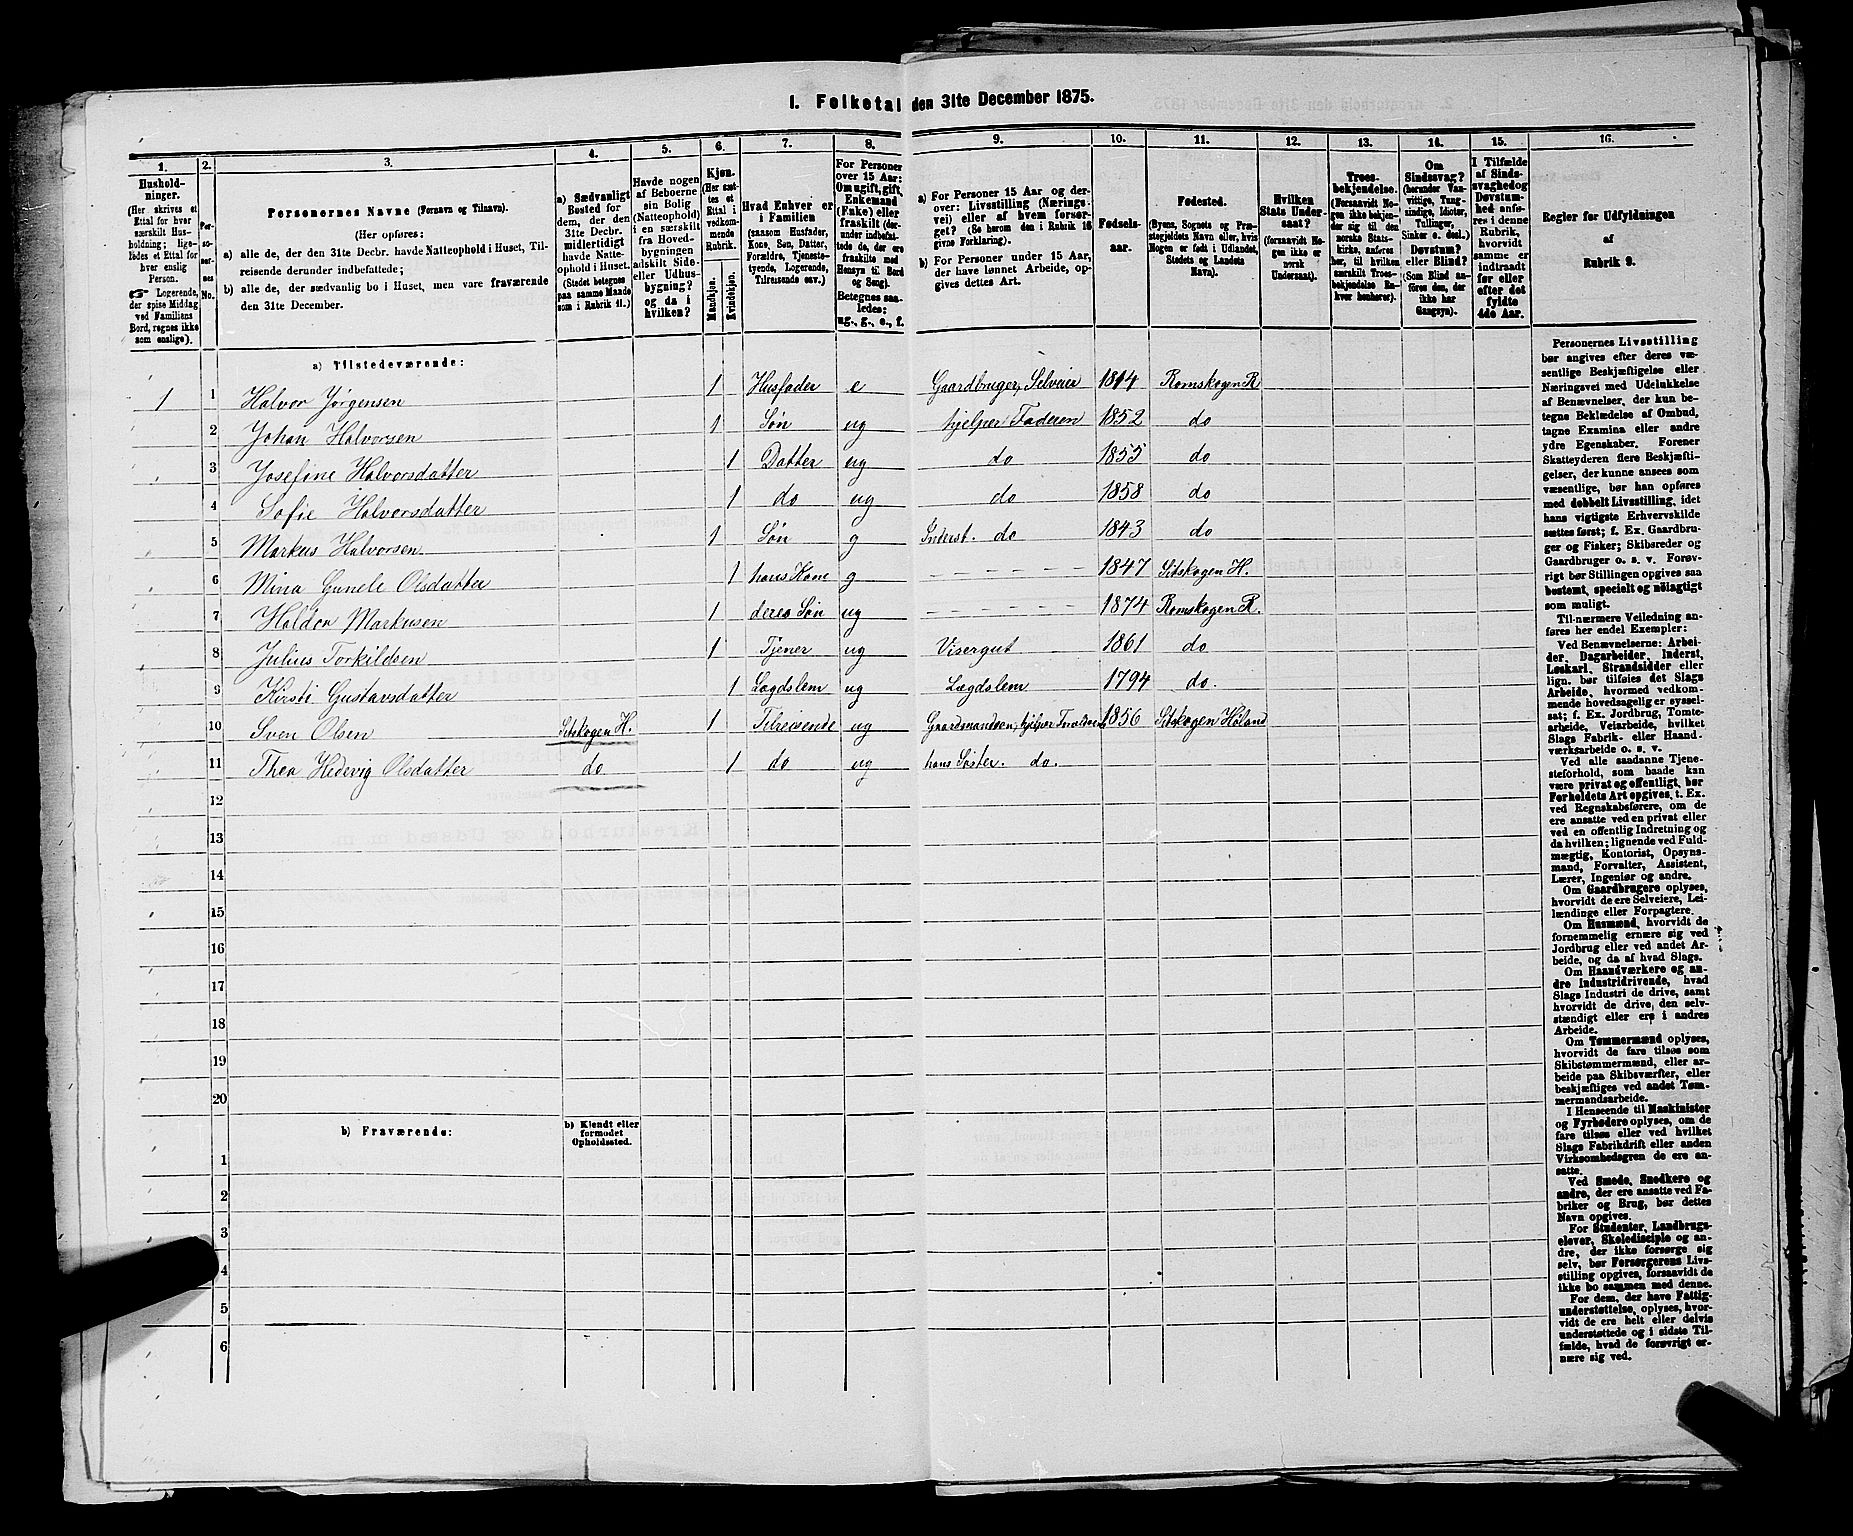 I. Folketal den 31te December 1875.
1. 2. 3. 4. 5. 6. 7. 8. 9. 10. 11. 12. 13. 14. 15. 16.
Husholdninger.
(Her skrives et Ettal for hver særskilt Husholdning; ligeledes et Ettal for hver enslig Person.
☞ Logerende, der spise Middag ved Familiens Bord, regnes ikke som enslige).
Personernes No.
Personernes Navne (Fornavn og Tilnavn).
(Her opføres:
a) alle de, der den 31te Decbr. havde Natteophold i Huset, Tilreisende derunder indbefattede;
b) alle de, der sædvanlig bo i Huset, men vare fraværende den 31te December.
a) Sædvanligt Bosted for dem, der den 31te Decbr. midlertidigt havde Natteophold i Huset.
(Stedet betegnes paa samme Maade som i Rubrik 11.)
Havde nogen af Beboerne sin Bolig (Natteophold) i en særskilt fra Hovedbygningen adskilt Side- eller Udhusbygning? og da i hvilken?
Kjøn.
(Her sættes et Ettal i vedkommende Rubrik.
Mandkjøn.
Kvindekjøn.
Hvad Enhver er i Familien
(saasom Husfader, Kone, Søn, Datter, Forældre, Tjenestetyende, Logerende, Tilreisende osv.)
For Personer over 15 Aar: Om ugift, gift, Enkemand (Enke) eller fraskilt (derunder indbefattede de, der ere fraskilte med Hensyn til Bord og Seng).
Betegnes saaledes: ug., g., e., f.
a) For Personer 15 Aar og derover: Livsstilling (Næringsvei) eller af hvem forsørget? (Se herom den i Rubrik 16 givne Forklaring).
b) For Personer under 15 Aar, der have lønnet Arbeide, opgives dettes Art.
Fødselsaar.
Fødested.
(Byens, Sognets og Præstegjeldets Navn eller, hvis Nogen er født i Udlandet, Stedets og Landets Navn).
Hvilken Stats Undersaat?
(forsaavidt Nogen ikke er norsk Undersaat).
Troesbekjendelse.
(Forsaavidt Nogen ikke bekjender sig til den norske Statskirke, anføres her, til hvilken særskilt Troesbekjendelse Enhver henhører).
Om Sindssvag? (herunder Vanvittige, Tungsindige, Idioter, Tullinger, Sinker o. desl.). Døvstum? eller Blind?
(Som Blind anføres den, der ikke har Gangsyn).
I Tilfælde af Sindssvaghed og Døvstumhed anføres i denne Rubrik, hvorvidt samme er indtraadt før eller efter det fyldte 4de Aar.
Regler for Udfyldningen af Rubrik 9.
a) Tilstedeværende:
1 1 Halvor Jørgensen 1 Husfader e Gaardbruger, Selveier 1814 Romskogen R
2 Johan Halvorsen 1 Søn ug hjelper Faderen 1852 do
3 Josefine Halvorsdatter 1 Datter ug do 1855 do
4 Sofie Halvorsdatter 1 do ug do 1858 do
5 Markus Halvorsen 1 Søn g Inderst. do 1843 do
6 Mina Gunele Olsdatter 1 hans Kone g - - - - - - 1847 Sitskogen H.
7 Haldor Markusen 1 deres Søn ug - - - - - - 1874 Romskogen R.
8 Julius Torkildsen 1 Tjener ug Visergut 1861 do
9 Kirsti Gustavsdatter 1 Lægdslem ug Lægdslem 1794 do.
10 Sven Olsen Sitskogen H. 1 Tilreisende ug Gaardmandsøn, hjelper 1856 Sitskogen Høland
11 Thea Hedevig Olsdatter do 1 do ug hans Søster. do.
12
13
14
15
16
17
18
19
20
b) Fraværende:
b) Kjendt eller formodet Opholdssted.
1
2
3
4
5
6
Personernes Livsstilling bør angives efter deres væsentlige Beskjæftigelse eller Næringsvei med Udelukkelse af Benævnelser, der kun betegne Beklædelse af Ombud, tagne Examina eller andre ydre Egenskaber. Forener Skatteyderen flere Beskjæftigelser, der kunne ansees som væsentlige, bør han opføres med dobbelt Livsstilling, idet hans vigtigste Erhvervskilde sættes først; f. Ex. Gaardbruger og Fisker; Skibsreder og Gaardbruger o. s. v. Forøvrigt bør Stillingen opgives saa bestemt, specielt og nøiagtigt som muligt.
Til nærmere Veiledning anføres her endel Exempler:
Ved Benævnelserne: Arbeider, Dagarbeider, Inderst, Løskarl, Strandsidder eller lign. bør tilføies det Slags Arbeide, hvormed vedkommende hovedsagelig er sysselsat; f. Ex. Jordbrug, Tomtearbeide, Veiarbeide, hvilket Slags Fabrik- eller Haandværksarbeide o. s. v.
Ved alle saadanne Tjenesteforhold, som baade kan være privat og offentligt, bør Forholdets Art opgives, t. Ex. ved Regnskabsførere, om de ere ansatte ved en privat eller ved en offentlig Indretning og da hvilken; lignende ved Fuldmægtig, Kontorist, Opsynsmand, Forvalter, Assistent, Lærer, Ingeniør og andre.
Om Gaardbrugere oplyses, hvorvidt de ere Selveiere, Leilændinge eller Forpagtere.
Om Husmænd, hvorvidt de fornemmelig ernære sig ved Jordbrug eller ved andet Arbeide, og da af hvad Slags.
Om Haandværkere og andre Industridrivende, hvad Slags Industri de drive, samt hvorvidt de drive den selvstændigt eller ere i andres Arbeide.
Om Tømmermænd oplyses, hvorvidt de fare tilsøs som Skibstømmermænd, eller arbeide paa Skibsværfter, eller beskjæftiges ved andet Tømmermandsarbeide.
I Henseende til Maskinister og Fyrbødere oplyses, om de fare tilsøs eller ved hvilket Slags Fabrikdrift eller anden Virksomhedsgren de ere ansatte.
Ved Smede, Snedkere og andre, der ere ansatte ved Fabriker og Brug, bør dettes Navn opgives.
For Studenter, Landbrugselever, Skoledisciple og andre, der ikke forsørge sig selv, bør Forsørgerens Livsstilling opgives, forsaavidt de ikke bo sammen med denne.
For dem, der have Fattigunderstøttelse, oplyses, hvorvidt de ere helt eller delvis understøttede og i sidste Tilfælde, hvad de forøvrigt ernære sig ved.